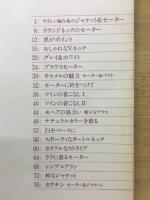 1：やさしい編み地のジャケット&セーター
8：ラウンドネックのセーター
12：黒がポイント
16：おしゃれなVネック
20：グレイ&ホワイト
24：ブラウスセーター
28：キャメルの魅力 セーター&ベスト
32：セーターに衿をつけて
36：ツインの着こなしⅠ
40：ツインの着こなしⅡ
44：モヘアの風合い 帽子もプラス
48：ナチュラルカラーを着る
52：白をベースに
56：スポーティなタートルネック
60：カラフルなストライプ
64：ラフに着るセーター
68：シンプルプラン
72：粋なジャケット
76：カウチン セーター&ジャケット